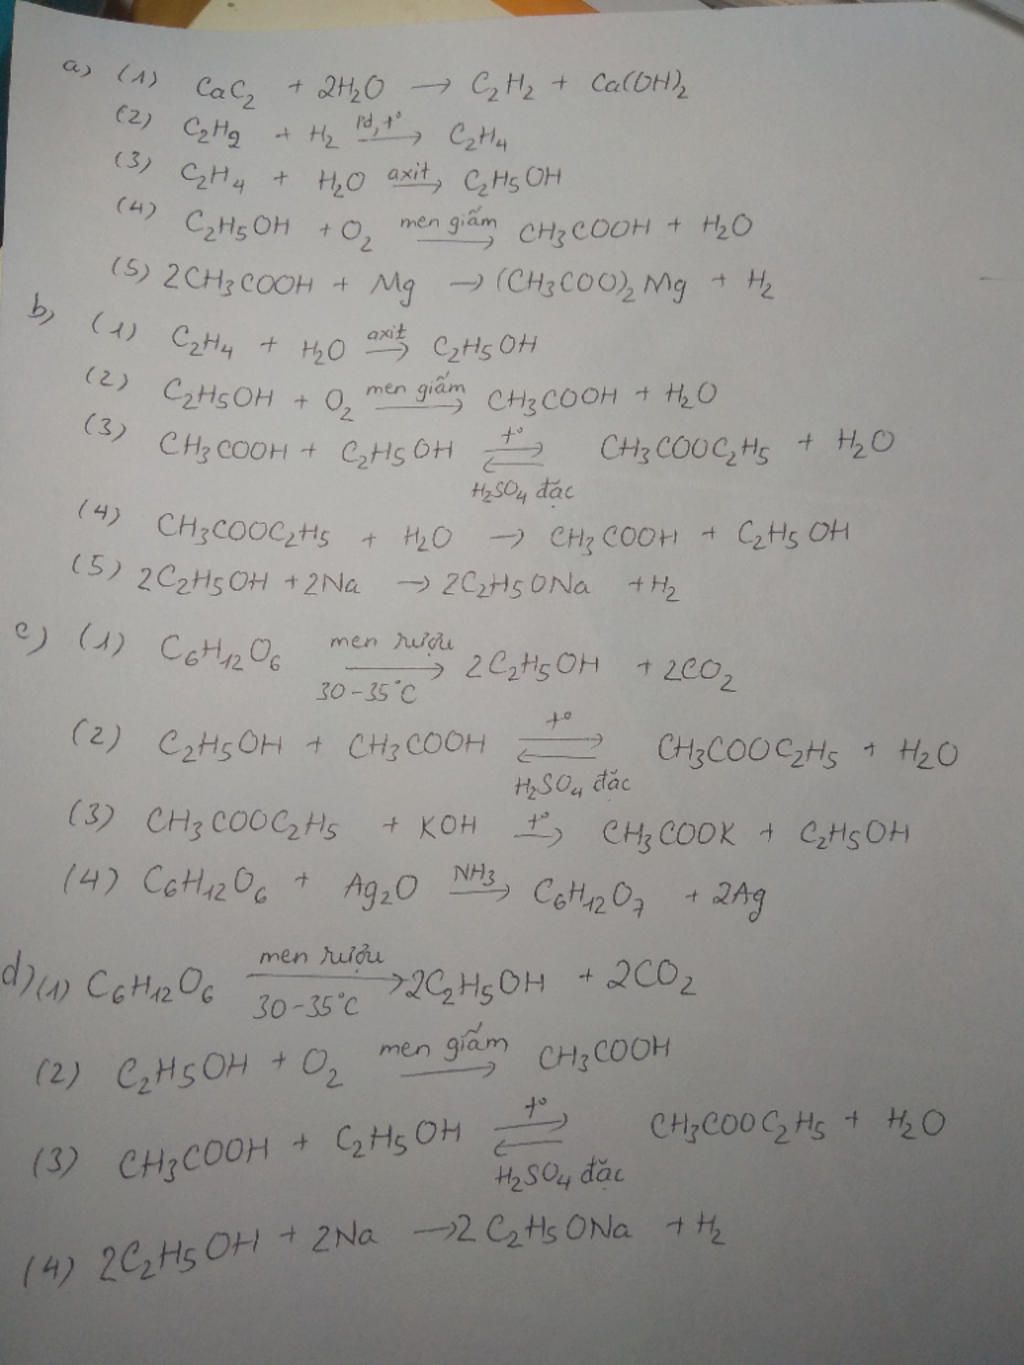 a) (1) CaC2 + 2H2O → C2H2 + Ca(OH)2
(2) C2H2 + H2 Pd, t° → C2H4
(3) C2H4 + H2O axit → C2H5OH
(4) C2H5OH + O2 men giấm → CH3COOH + H2O
(5) 2CH3COOH + Mg → (CH3COO)2 Mg + H2
b) (1) C2H4 + H2O axit → C2H5OH
(2) C2H5OH + O2 men giấm → CH3COOH + H2O
(3) CH3COOH + C2H5OH t° ⇌ H2SO4 đặc CH3COOC2H5 + H2O
(4) CH3COOC2H5 + H2O → CH3COOH + C2H5OH
(5) 2C2H5OH + 2Na → 2C2H5ONa + H2
c) (1) C6H12O6 men rượu → 30-35°C 2C2H5OH + 2CO2
(2) C2H5OH + CH3COOH t° ⇌ H2SO4 đặc CH3COOC2H5 + H2O
(3) CH3COOC2H5 + KOH t° → CH3COOK + C2H5OH
(4) C6H12O6 + Ag2O NH3 → C6H12O7 + 2Ag
d) (1) C6H12O6 men rượu → 30-35°C 2C2H5OH + 2CO2
(2) C2H5OH + O2 men giấm → CH3COOH
(3) CH3COOH + C2H5OH t° ⇌ H2SO4 đặc CH3COOC2H5 + H2O
(4) 2C2H5OH + 2Na → 2C2H5ONa + H2